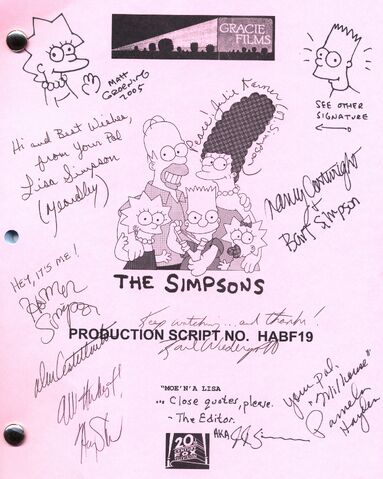 GRACIE
FILMS
MATT
GROENING
2005
SEE OTHER
SIGNATURE
Hi and Best Wishes,
from Your Pal
Lisa Simpson
(Yeardley)
Nancy Cartwright
+
Bart Simpson
THE SIMPSONS
HEY, IT'S ME!
HOMER
SIMPSON
Dan Castellaneta
Keep watching...and thanks!
PRODUCTION SCRIPT NO. HABF19
"MOE'N'A LISA
... Close quotes, please.
- The Editor.
AKA
All the best!
your pal,
"Milhouse"
Pamela
Hayden
20
TH
CENTURY
FOX